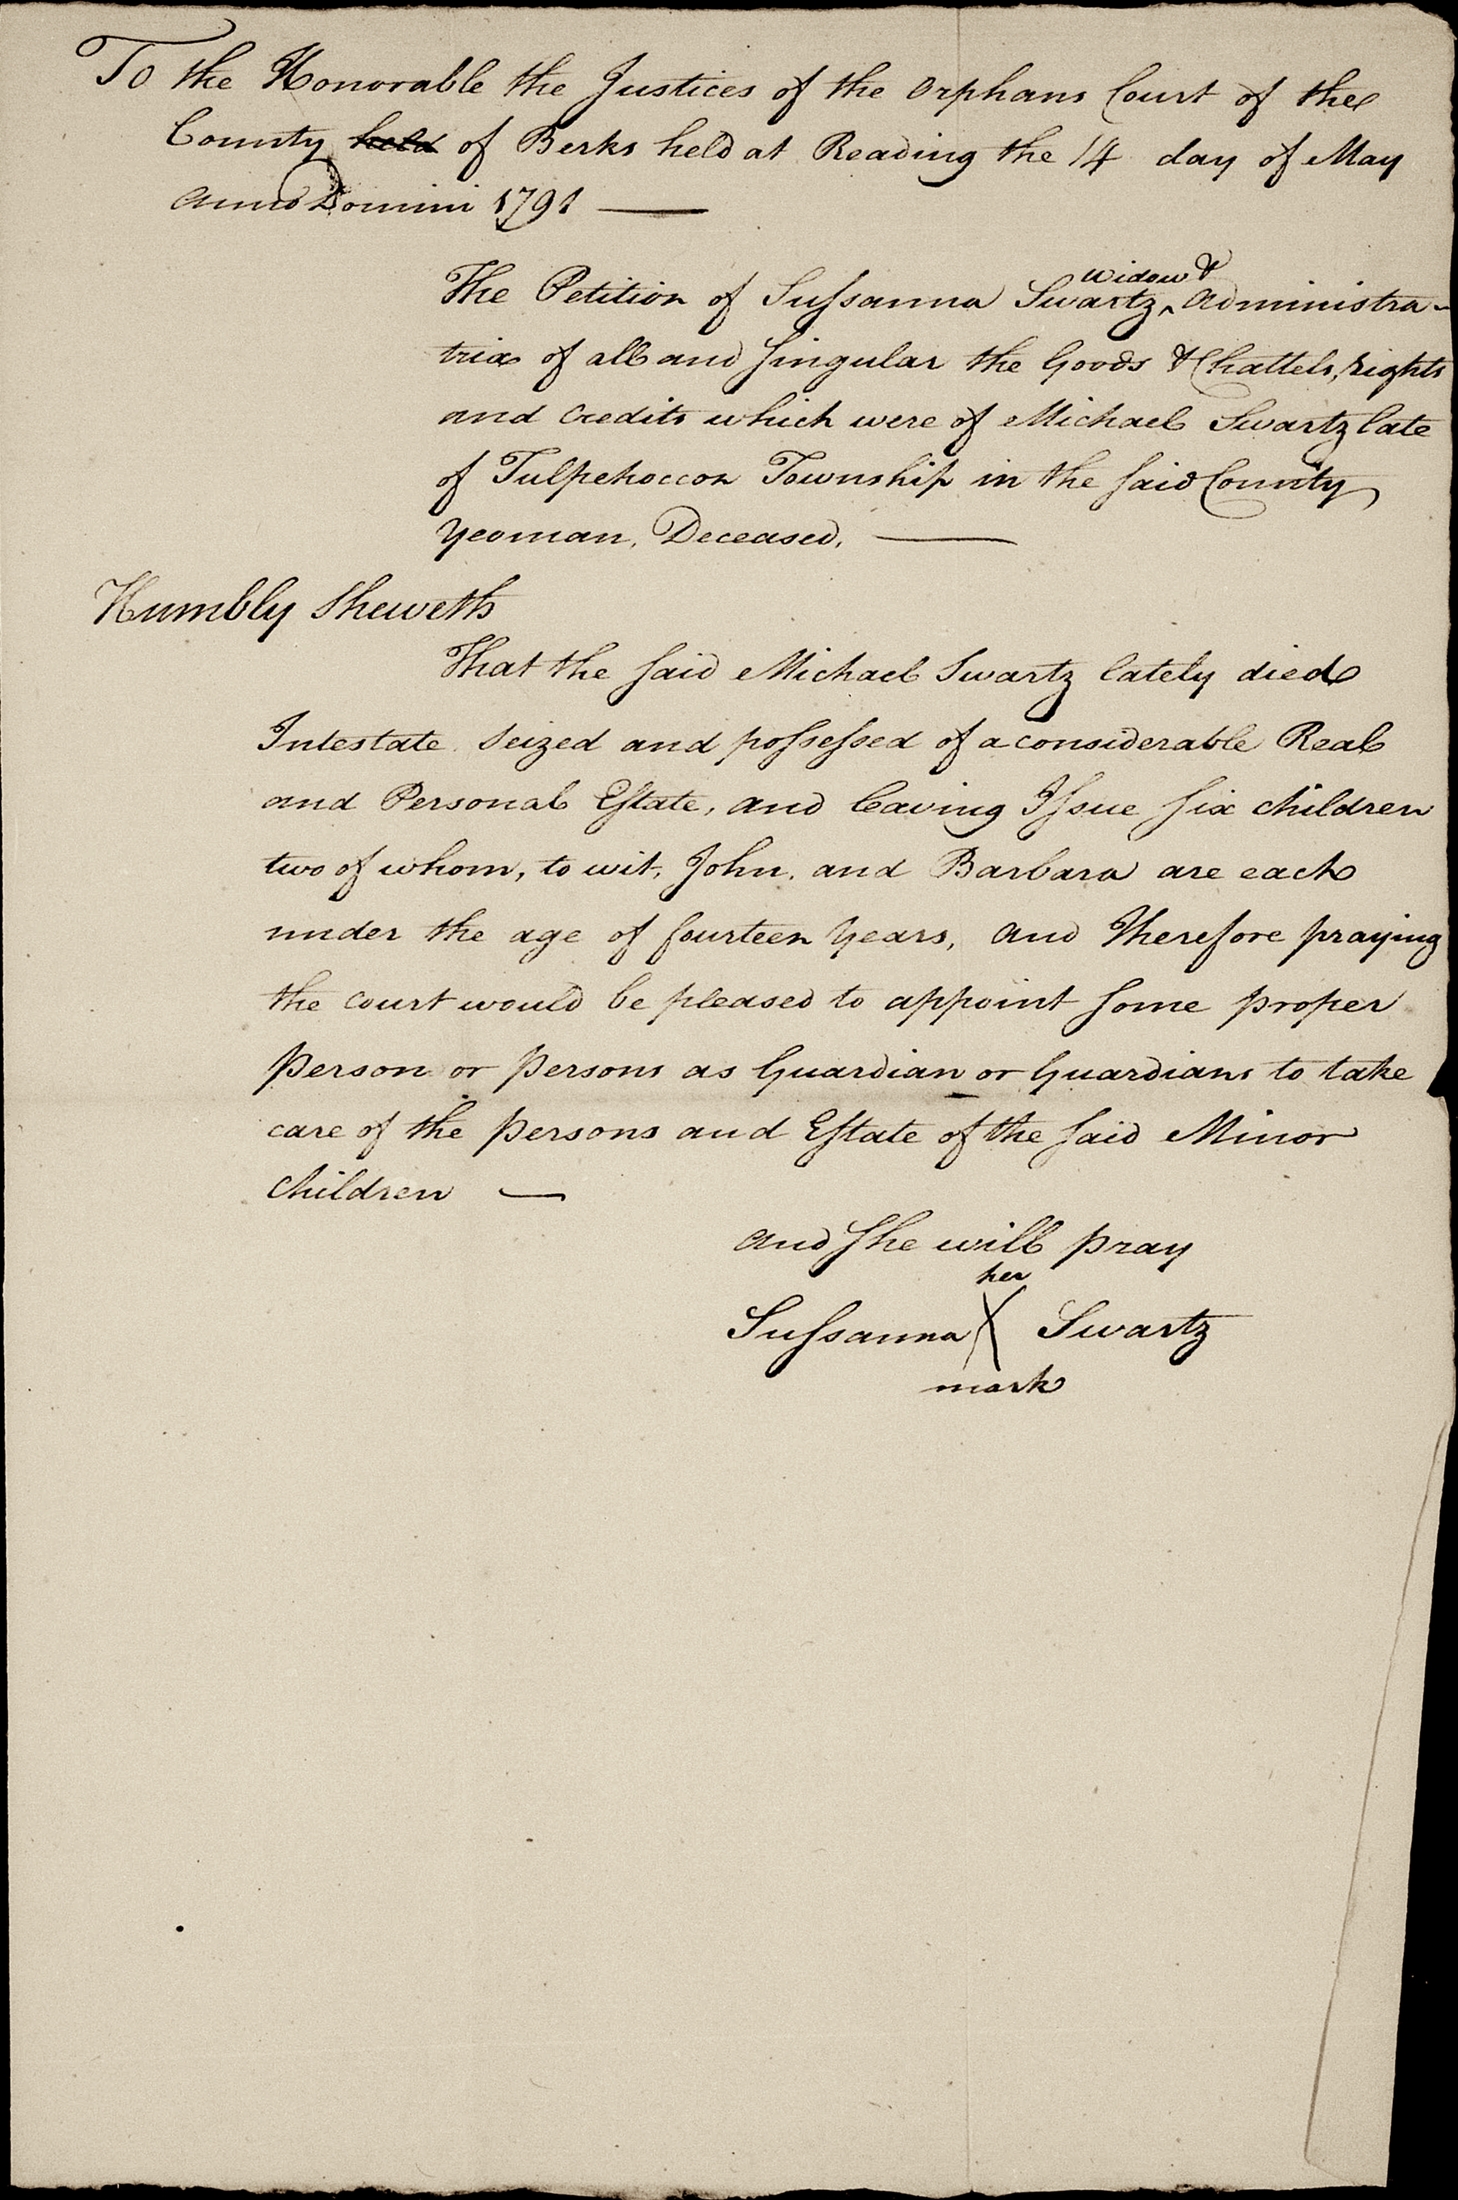 To the Honorable the Justices of the Orphans Court of the
County held of Berks held at Reading the 14 day of May
Anno Domini 1791 —
widow &
The Petition of Sussanna Swartz ^ Administra-
trix of all and singular the Goods & Chattels, rights
and Credits which were of Michael Swartz late
of Tulpehoccon Township in the said County
Yeoman, Deceased, —
Humbly Sheweth
That the said Michael Swartz lately died
Intestate Seized and possessed of a considerable Real
and Personal Estate, and leaving Issue six Children
two of whom, to wit, John, and Barbara are each
under the age of fourteen Years, and Therefore praying
the Court would be pleased to appoint some proper
Person or Persons as Guardian or Guardians to take
care of the Persons and Estate of the said Minor
Children —
and she will pray
her
Sussanna X Swartz
mark